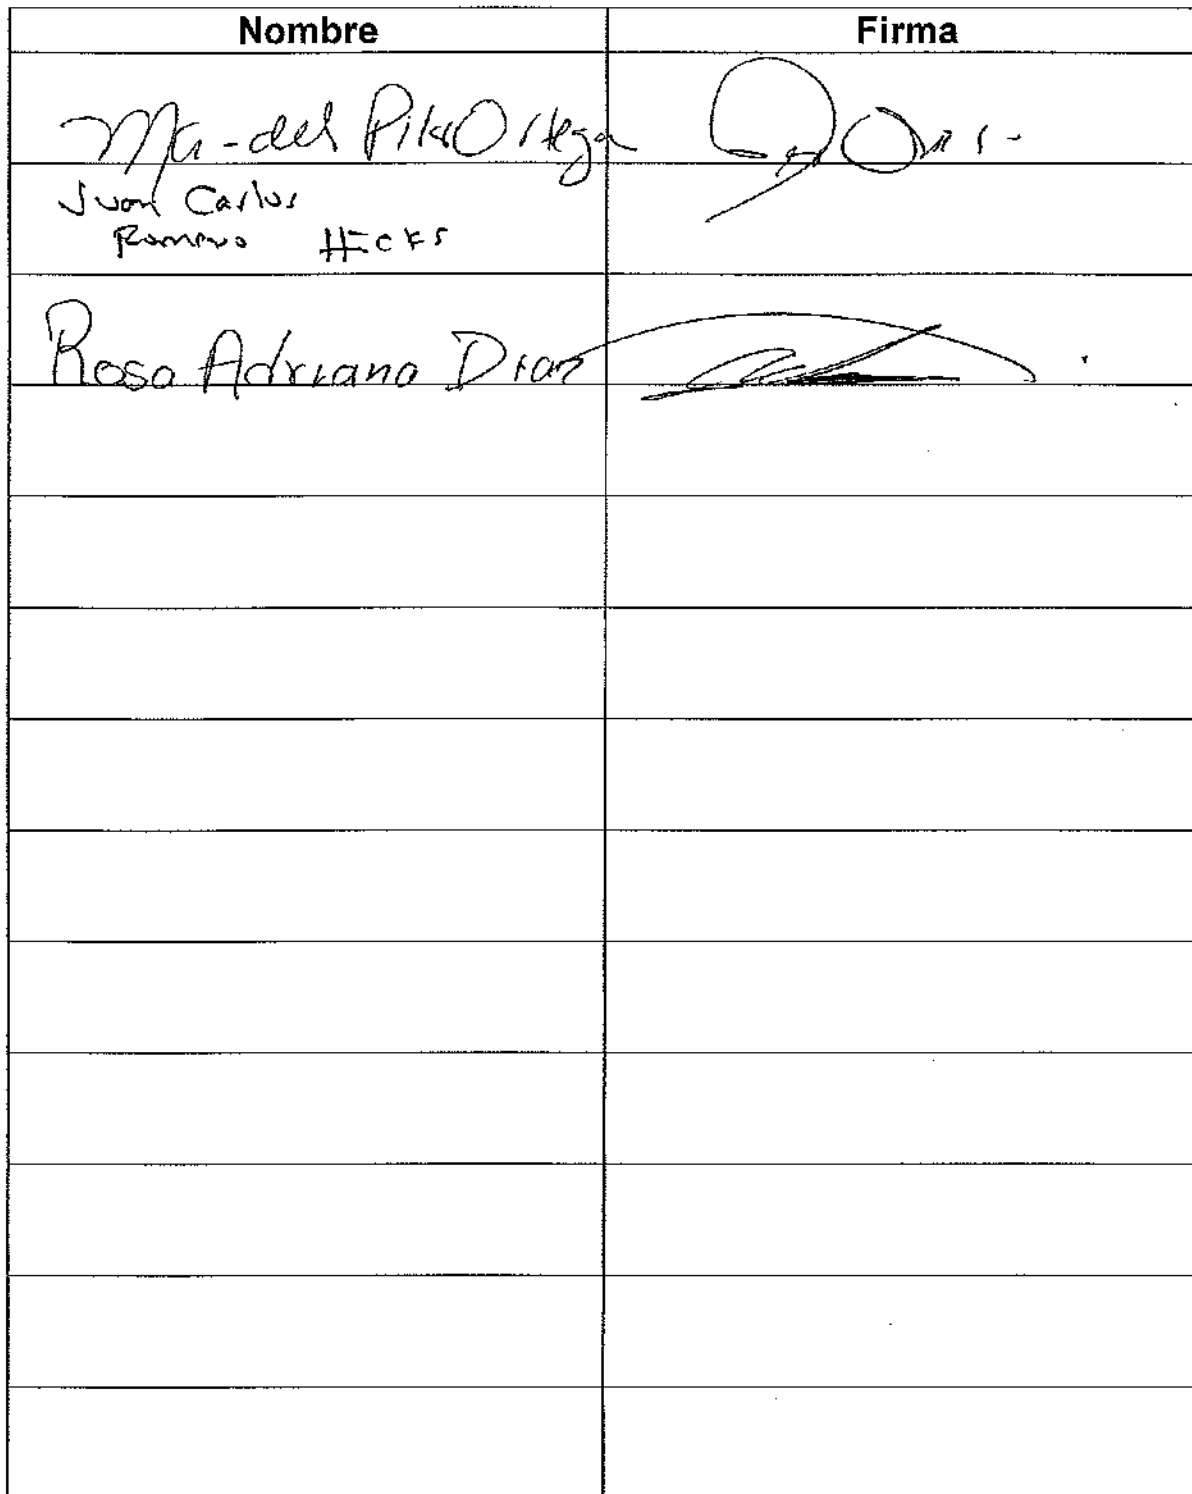 Nombre Firma
Ma-del Pilar Ortega
Juan Carlos
Romero Hicks
Rosa Adriana Díaz